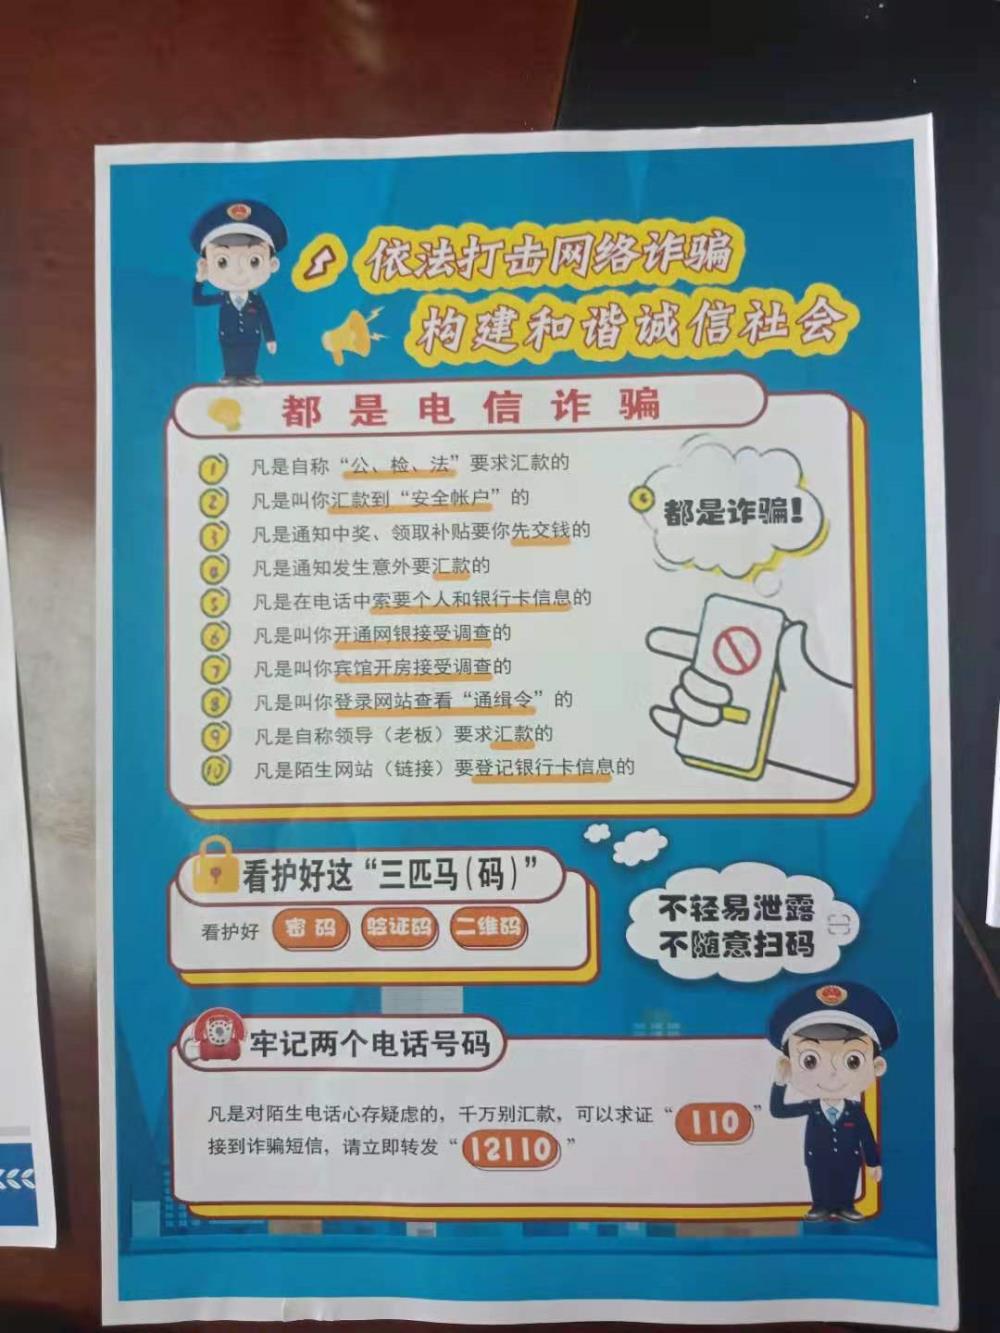 依法打击网络诈骗
构建和谐诚信社会
都是电信诈骗
1 凡是自称“公、检、法”要求汇款的
2 凡是叫你汇款到“安全帐户”的
3 凡是通知中奖、领取补贴要你先交钱的
4 凡是通知发生意外要汇款的
5 凡是在电话中索要个人和银行卡信息的
6 凡是叫你开通网银接受调查的
7 凡是叫你宾馆开房接受调查的
8 凡是叫你登录网站查看“通缉令”的
9 凡是自称领导（老板）要求汇款的
10 凡是陌生网站（链接）要登记银行卡信息的
都是诈骗！
看护好这“三匹马（码）”
看护好 密码 验证码 二维码
不轻易泄露
不随意扫码
牢记两个电话号码
凡是对陌生电话心存疑虑的，千万别汇款，可以求证“110”
接到诈骗短信，请立即转发“12110”